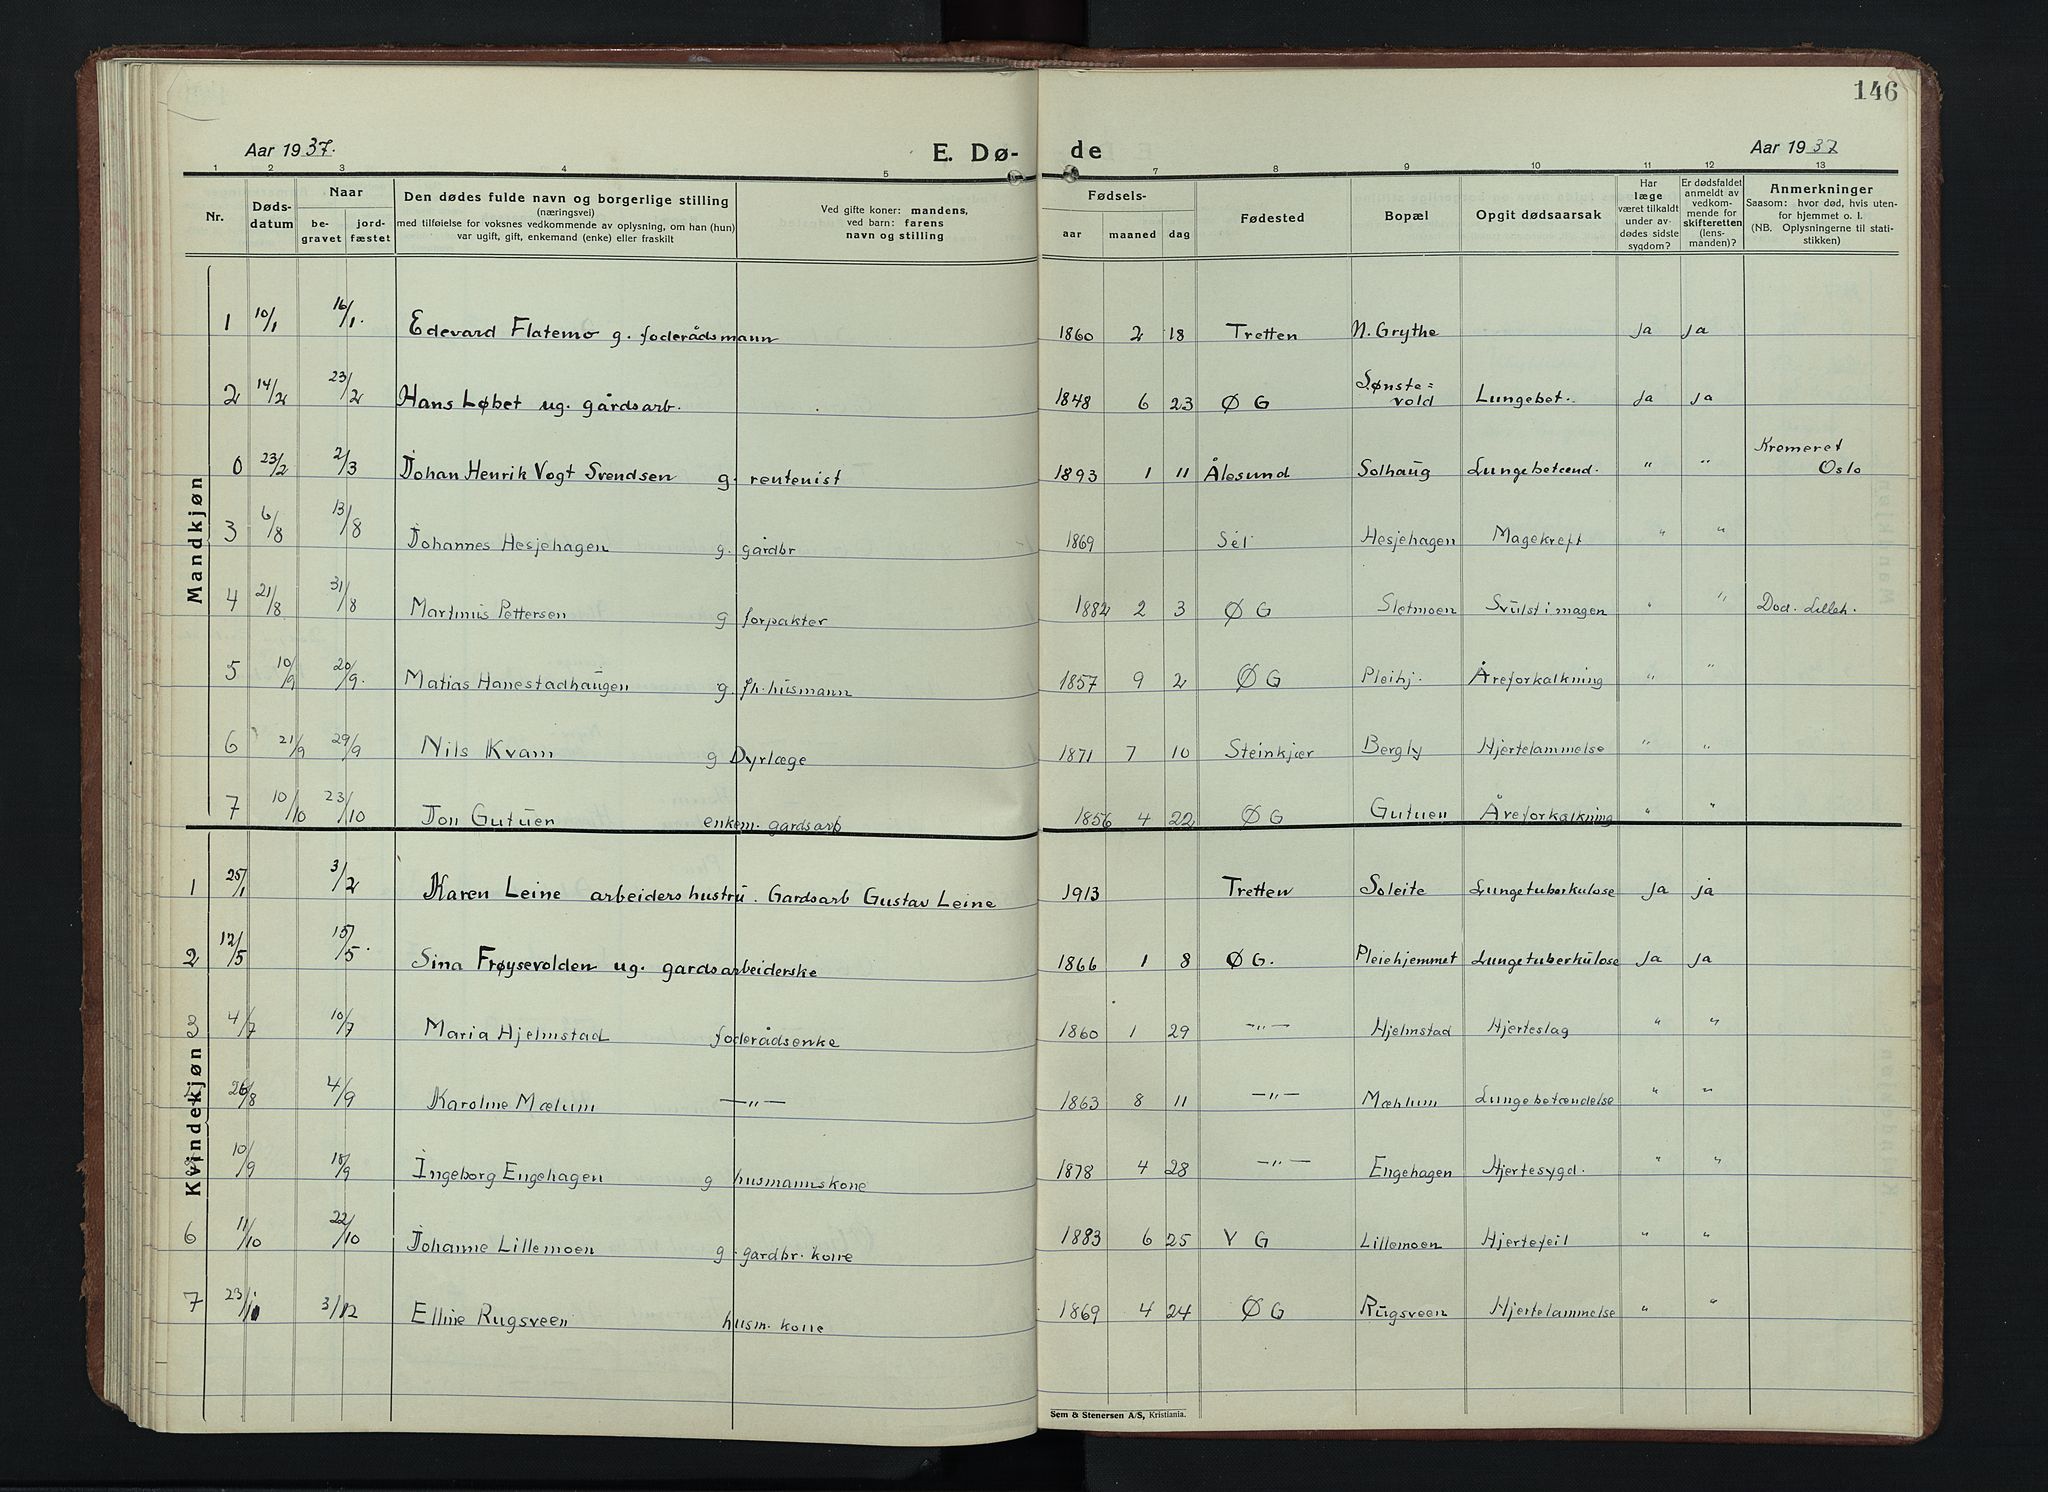 146
Aar 1937.
E. Dø-
de
Aar 1937
1 2 3 4 5 7 8 9 10 11 12 13
Nr.
Døds-
datum
Naar
be-
gravet
jord-
fæstet
Den dødes fulde navn og borgerlige stilling
(næringsvei)
med tilføielse for voksnes vedkommende av oplysning, om han (hun)
var ugift, gift, enkemand (enke) eller fraskilt
Ved gifte koner: mandens,
ved barn: farens
navn og stilling
Fødsels-
aar
maaned
dag
Fødested
Bopæl
Opgit dødsaarsak
Har
læge
været tilkaldt
under av-
dødes sidste
sygdom?
Er dødsfaldet
anmeldt av
vedkom-
mende for
skifteretten
(lens-
manden)?
Anmerkninger
Saasom: hvor død, hvis uten-
for hjemmet o. l.
(NB. Oplysningerne til stati-
stikken)
Mandkjøn
1 10/1 16/1. Edevard Flatemo g. foderådsmann 1860 2 18 Tretten N. Grythe ja ja
2 14/2 23/2 Hans Løbet ug. gårdsarb. 1848 6 23 Ø G Sønste=
vold Lungebet. ja ja
0 23/2 2/3 Johan Henrik Vogt Svendsen g. rentenist 1893 1 11 Ålesund Solhaug Lungebetænd. " " Kremeret
Oslo
3 6/8 13/8 Johannes Hesjehagen g. gårdbr 1869 Sel Hesjehagen Magekreft " "
4 21/8 31/8 Martinus Pettersen g forpakter 1882 2 3 Ø G Sletmoen Svulst i magen " " Død. Lilleh.
5 10/9 20/9. Matias Hanestadhaugen g. fh. husmann 1857 9 2 Ø G Pleihj. Åreforkalkning " "
6 21/9 29/9 Nils Kvam g Dyrlæge 1871 7 10 Steinkjær Bergly Hjertelammelse " "
7 10/10 23/10 Jon Gutuen enkem. gardsarb 1856 4 22 Ø G Gutuen Åreforkalkning " "
Kvindekjøn
1 25/1 3/2 Karen Leine arbeidershustru. Gardsarb Gustav Leine 1913 Tretten Soleite Lungetuberkulose ja ja
2 12/5 15/5. Sina Frøysevolden ug. gardsarbeiderske 1866 1 8 Ø G. Pleiehjemmet Lungetuberkulose ja ja
3 4/7 10/7 Maria Hjelmstad foderådsenke 1860 1 29 —"— Hjelmstad Hjerteslag " "
26/8 4/9 Karoline Mælum —"— 1863 8 11 —"— Mæhlum Lungebetændelse " "
10/9 18/9 Ingeborg Engehagen g husmannskone 1878 4 28 —"— Engehagen Hjertesygd. " "
6 11/10 22/10 Johanne Lillemoen g. gardbr. kone 1883 6 25 V G Lillemoen Hjertefeil " "
7 23/11 3/12 Elline Rugsveen husm. kone 1869 4 24 Ø G Rugsveen Hjertelammelse " "
Sem & Stenersen A/S, Kristiania.